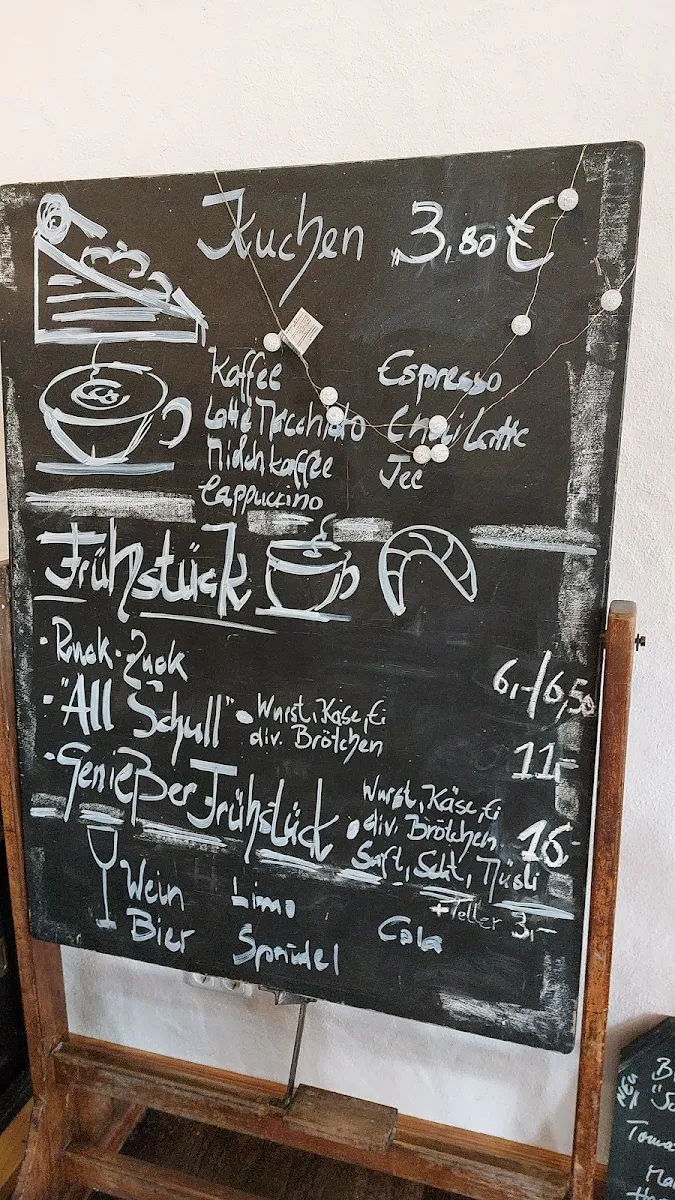 Kuchen 3,80 €
Kaffee Espresso
Latte Macchiato Chai Latte
Milchkaffee Tee
Cappuccino
Frühstück
· Ruck-Zuck 6,-/6,50
· "All Schull" • Wurst, Käse, Ei
div. Brötchen 11,-
· Genießer Frühstück • Wurst, Käse, Ei
div. Brötchen 16,-
Saft, Sekt, Müsli
+Teller 3,-
Wein Limo Cola
Bier Sprudel
NEU
Toma